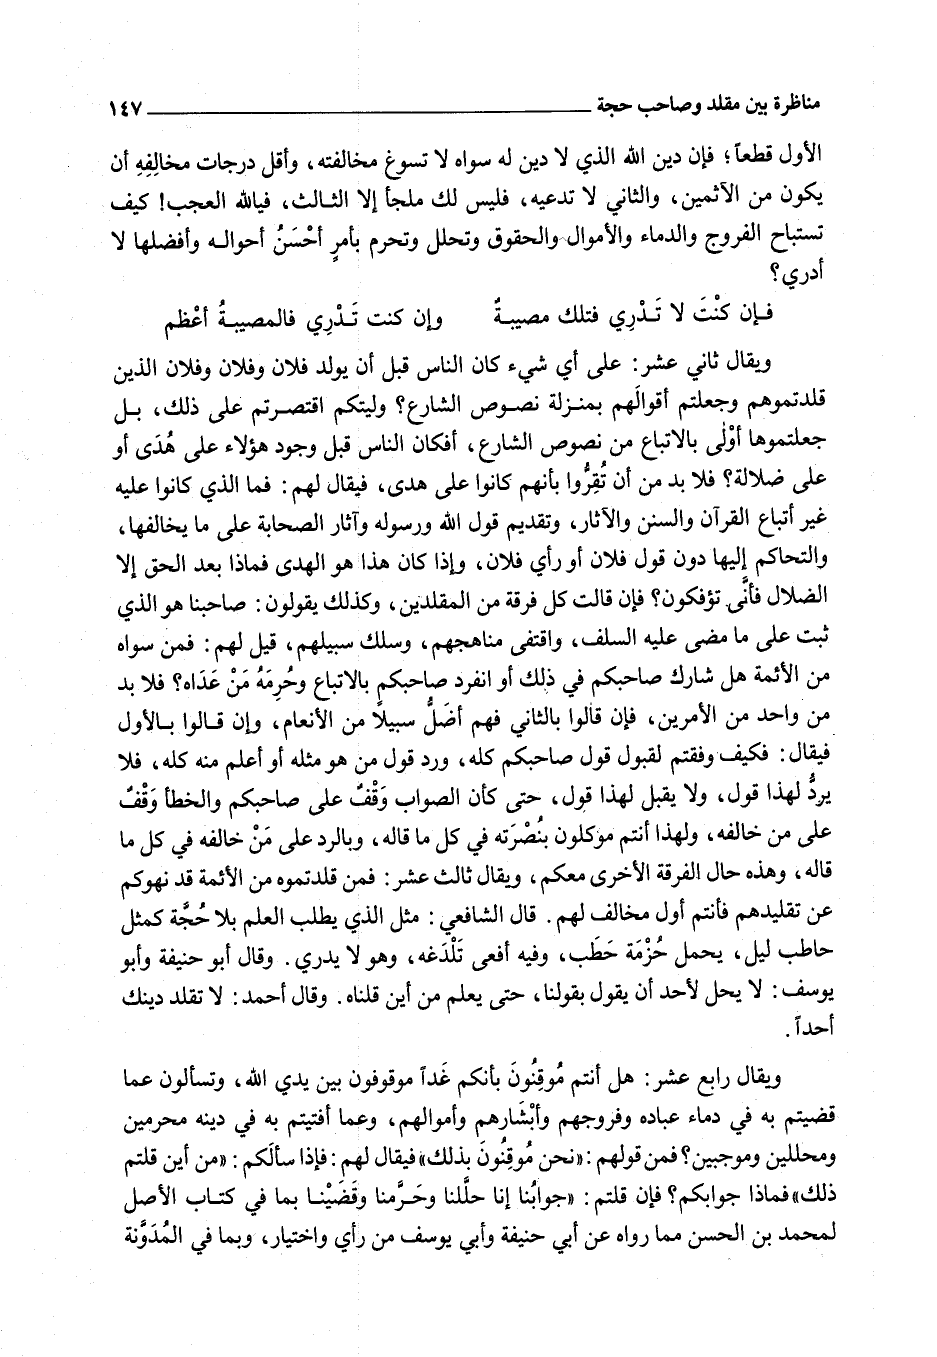 مناظرة بين مقلد وصاحب حجة ١٤٧
الأول قطعاً؛ فإن دين الله الذي لا دين له سواه لا تسوغ مخالفته، وأقل درجات مخالِفِهِ أن
يكون من الآثمين، والثاني لا تدعيه، فليس لك ملجأ إلا الثالث، فيالله العجب! كيف
تستباح الفروج والدماء والأموال والحقوق وتحلل وتحرم بأمرٍ أحْسَنُ أحواله وأفضلها لا
أدري؟
فإن كنْتَ لا تَدْرِي فتلك مصيبةٌ وإن كنت تَدْرِي فالمصيبةُ أعْظم
ويقال ثاني عشر: على أي شيء كان الناس قبل أن يولد فلان وفلان وفلان الذين
قلدتموهم وجعلتم أقوالَهم بمنزلة نصوص الشارع؟ وليتكم اقتصرتم على ذلك، بل
جعلتموها أوْلى بالاتباع من نصوص الشارع، أفكان الناس قبل وجود هؤلاء على هُدَى أو
على ضلالة؟ فلا بد من أن تُقِرُّوا بأنهم كانوا على هدى، فيقال لهم: فما الذي كانوا عليه
غير أتباع القرآن والسنن والآثار، وتقديم قول الله ورسوله وآثار الصحابة على ما يخالفها،
والتحاكم إليها دون قول فلان أو رأي فلان، وإذا كان هذا هو الهدى فماذا بعد الحق إلا
الضلال فأنَّى تؤفكون؟ فإن قالت كل فرقة من المقلدين، وكذلك يقولون: صاحبنا هو الذي
ثبت على ما مضى عليه السلف، واقتفى مناهجهم، وسلك سبيلهم، قيل لهم: فمن سواه
من الأئمة هل شارك صاحبكم في ذلك أو انفرد صاحبكم بالاتباع وحُرِمَهُ مَنْ عَدَاه؟ فلا بد
من واحد من الأمرين، فإن قالوا بالثاني فهم أضَلُّ سبيلاً من الأنعام، وإن قالوا بالأول
فيقال: فكيف وفقتم لقبول قول صاحبكم كله، ورد قول من هو مثله أو أعلم منه كله، فلا
يردُّ لهذا قول، ولا يقبل لهذا قول، حتى كأن الصواب وَقْفٌ على صاحبكم والخطأ وَقْفٌ
على من خالفه، ولهذا أنتم موكلون بنُصْرَته في كل ما قاله، وبالرد على مَنْ خالفه في كل ما
قاله، وهذه حال الفرقة الأخرى معكم، ويقال ثالث عشر: فمن قلدتموه من الأئمة قد نهوكم
عن تقليدهم فأنتم أول مخالف لهم. قال الشافعي: مثل الذي يطلب العلم بلا حُجَّة كمثل
حاطب ليل، يحمل حُزْمَة حَطَب، وفيه أفعى تَلْدَغه، وهو لا يدري. وقال أبو حنيفة وأبو
يوسف: لا يحل لأحد أن يقول بقولنا، حتى يعلم من أين قلناه. وقال أحمد: لا تقلد دينك
أحداً.
ويقال رابع عشر: هل أنتم مُوقِنُونَ بأنكم غَداً موقوفون بين يدي الله، وتسألون عما
قضيتم به في دماء عباده وفروجهم وأبْشَارهم وأموالهم، وعما أفتيتم به في دينه محرمين
ومحللين وموجبين؟ فمن قولهم: «نحن مُوقِنُونَ بذلك» فيقال لهم: فإذا سألَكم: «من أين قلتم
ذلك» فماذا جوابكم؟ فإن قلتم: «جوابُنا إنا حلَّلنا وحَرَّمنا وقَضَيْنا بما في كتاب الأصل
لمحمد بن الحسن مما رواه عن أبي حنيفة وأبي يوسف من رأي واختيار، وبما في المُدَوَّنة